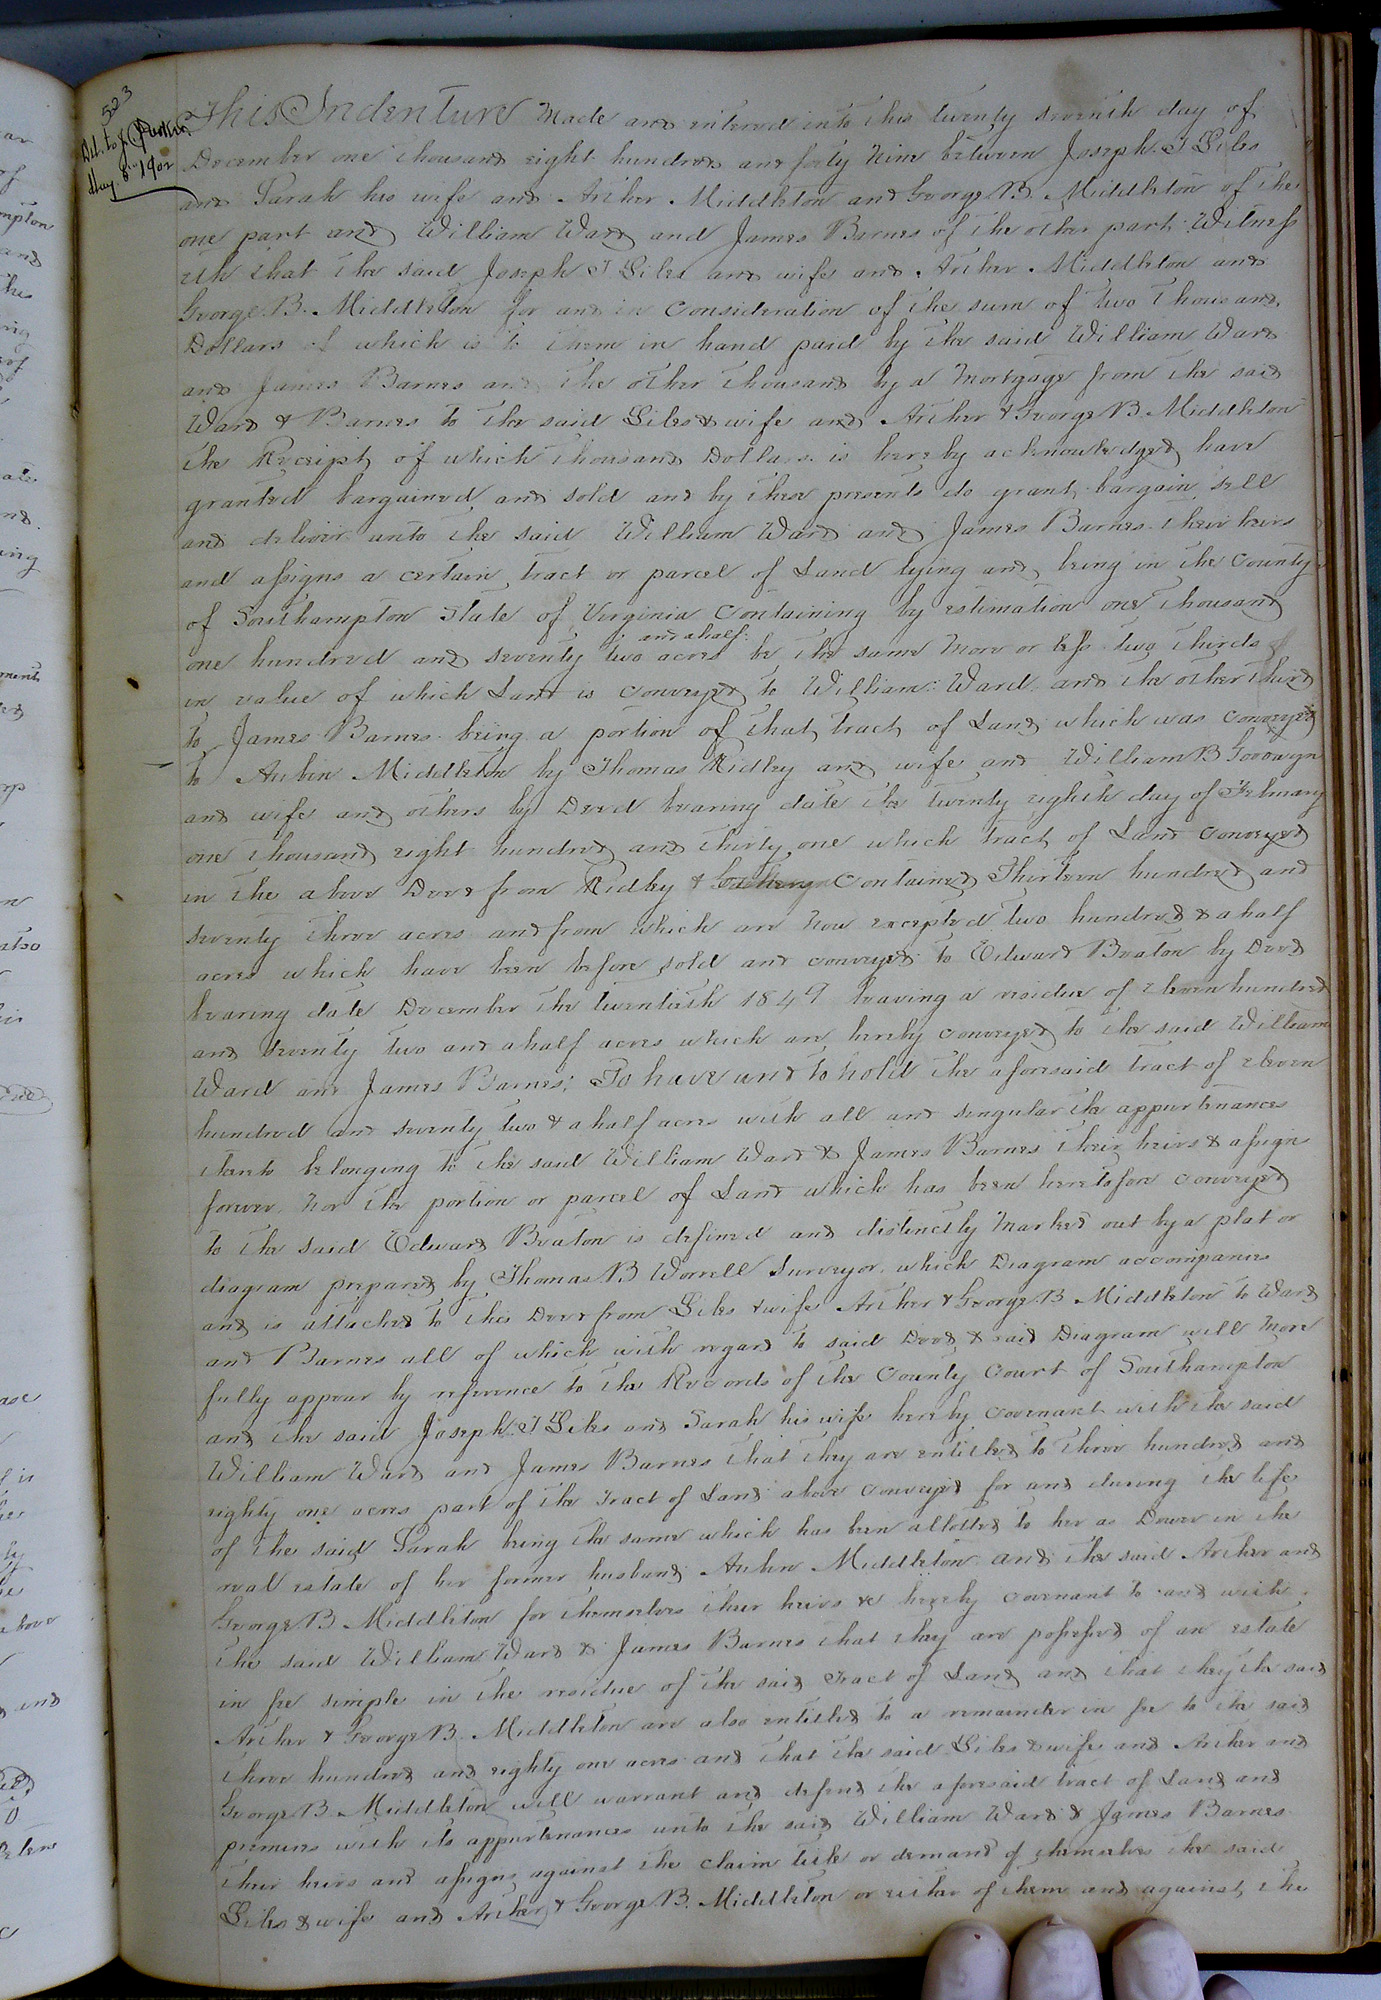 523
Del. to J. Parker
Aug. 8th 1902
This Indenture Made and entered into this twenty seventh day of
December one thousand eight hundred and forty nine between Joseph T Giles
and Sarah his wife and Archer Middleton and George B. Middleton of the
one part and William Ward and James Barnes of the other part Witness
eth that the said Joseph T Giles and wife and Archer Middleton and
George B. Middleton for and in Consideration of the sum of two thousand
Dollars which is to them in hand paid by the said William Ward
and James Barnes and the other thousand by a Mortgage from the said
Ward & Barnes to the said Giles & wife and Archer & George B Middleton
the Receipt of which thousand Dollars is hereby acknowledged have
granted bargained and sold and by these presents do grant, bargain, sell
and deliver unto the said William Ward and James Barnes their heirs
and assigns a certain tract or parcel of Land lying and being in the County
of Southampton State of Virginia Containing by estimation one thousand
one hundred and seventy two and a half acres be the same More or less two thirds
in value of which Land is conveyed to William Ward and the other third
to James Barnes being a portion of that tract of Land which was conveyed
to Aubin Middleton by Thomas Ridley and wife and William B Goodwyn
and wife and others by Deed bearing date the twenty eighth day of February
one thousand eight hundred and thirty one which tract of Land conveyed
in the above Deed from Ridley & contained Thirteen hundred and
seventy three acres and from which are now excepted two hundred & a half
acres which have been before sold and conveyed to Edward Beaton by Deed
bearing date December the twentieth 1849 leaving a residue of eleven hundred
and seventy two and a half acres which are hereby conveyed to the said William
Ward and James Barnes; To have and to hold the aforesaid tract of eleven
hundred and seventy two & a half acres with all and singular the appurtenances
thereto belonging to the said William Ward & James Barnes their heirs & assigns
forever. Nor the portion or parcel of Land which has been heretofore conveyed
to the said Edward Beaton is defined and distinctly Marked out by a plat or
diagram prepared by Thomas B Worrell Surveyor, which Diagram accompanies
and is attached to this Deed from Giles & wife Archer & George B Middleton to Ward
and Barnes all of which with regard to said Deed & said Diagram will More
fully appear by reference to the Records of the County Court of Southampton
and the said Joseph T Giles and Sarah his wife hereby covenant with the said
William Ward and James Barnes that they are entitled to three hundred and
eighty one acres part of the tract of Land above conveyed for and during the life
of the said Sarah being the same which has been allotted to her as Dower in the
real estate of her former husband Aubin Middleton and the said Archer and
George B Middleton for themselves their heirs &c hereby covenant to and with
the said William Ward & James Barnes that they are possessed of an estate
in fee simple in the residue of the said Tract of Land and that they the said
Archer & George B Middleton are also entitled to a remainder in fee to the said
three hundred and eighty one acres and that the said Giles & wife and Archer and
George B Middleton will warrant and defend the aforesaid tract of Land and
premises with its appurtenances unto the said William Ward & James Barnes
their heirs and assigns against the claim title or demand of themselves the said
Giles & wife and Archer & George B. Middleton or either of them and against the